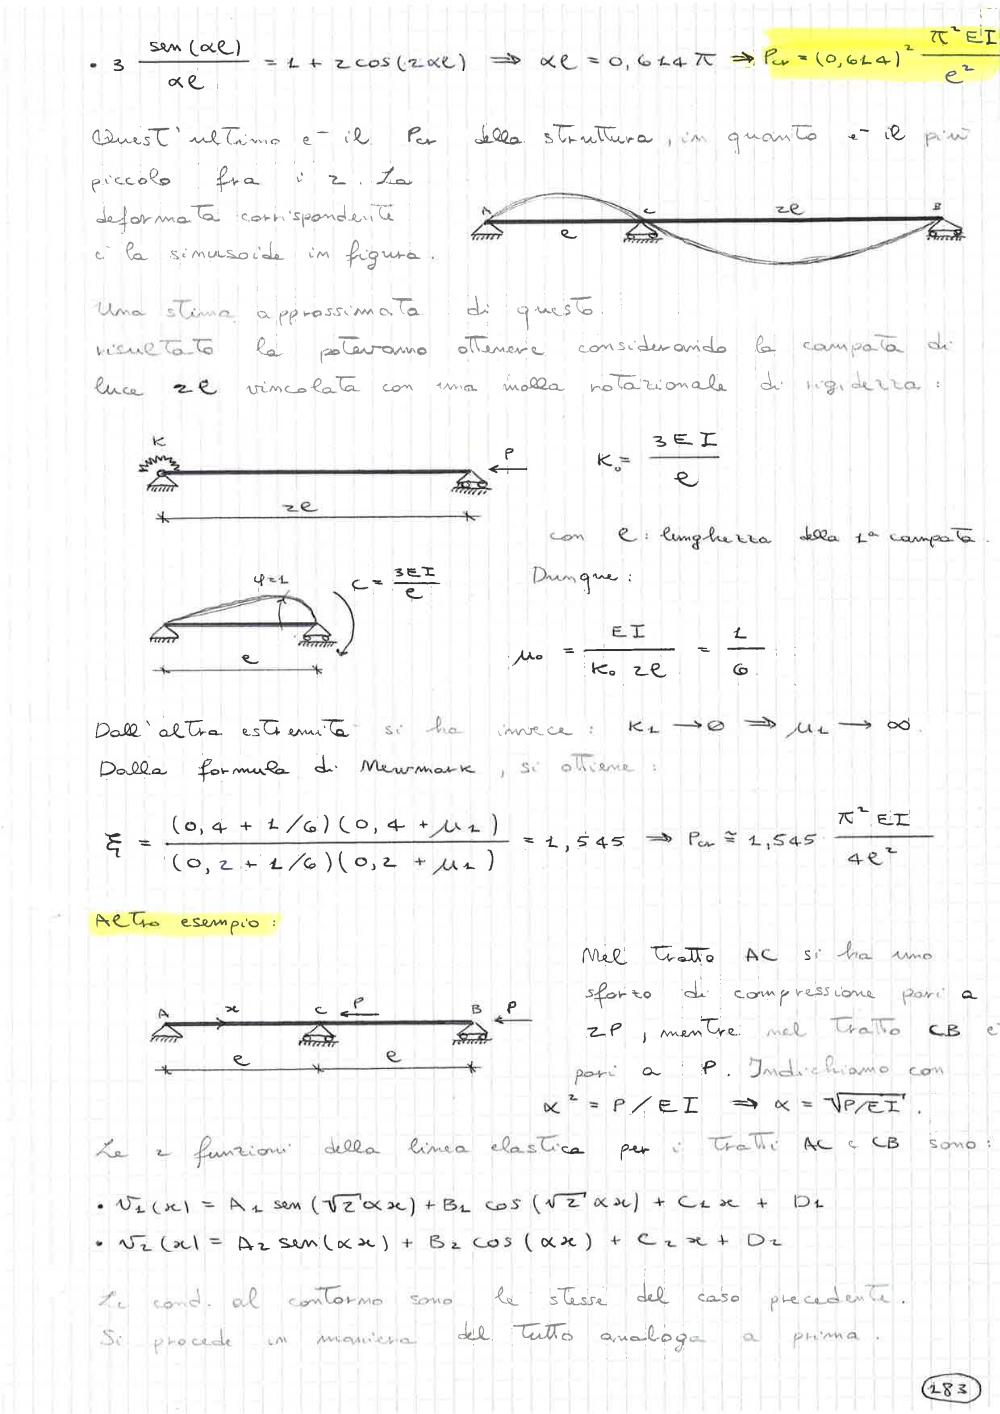 • 3 sen(αl)/αl = 1 + 2cos(2αl) ⇒ αl = 0,614π ⇒ Pcr = (0,614)² π²EI/l²
Quest'ultimo è il Pcr della struttura, in quanto è il più
piccolo fra i 2. La
deformata corrispondente
è la sinusoide in figura.
A C 2l B
l
Una stima approssimata di questo
risultato la potevamo ottenere considerando la campata di
luce 2l vincolata con una molla rotazionale di rigidezza:
K P K₀ = 3EI/l
2l
con l: lunghezza della 1ª campata.
φ=1 C = 3EI/l Dunque:
l
μ₀ = EI/K₀ 2l = 1/6
Dall'altra estremità si ha invece: K₁ → 0 ⇒ μ₁ → ∞.
Dalla formula di Newmark, si ottiene:
ξ = (0,4 + 1/6)(0,4 + μ₁)/(0,2 + 1/6)(0,2 + μ₁) = 1,545 ⇒ Pcr ≅ 1,545 π²EI/4l²
Altro esempio:
Nel tratto AC si ha uno
sforzo di compressione pari a
A x C P B P
2P, mentre nel tratto CB è
l l
pari a P. Indichiamo con
α² = P/EI ⇒ α = √P/EI.
Le 2 funzioni della linea elastica per i tratti AC e CB sono:
• v₁(x) = A₁ sen(√2 αx) + B₁ cos(√2 αx) + C₁x + D₁
• v₂(x) = A₂ sen(αx) + B₂ cos(αx) + C₂x + D₂
Le cond. al contorno sono le stesse del caso precedente.
Si procede in maniera del tutto analoga a prima.
183